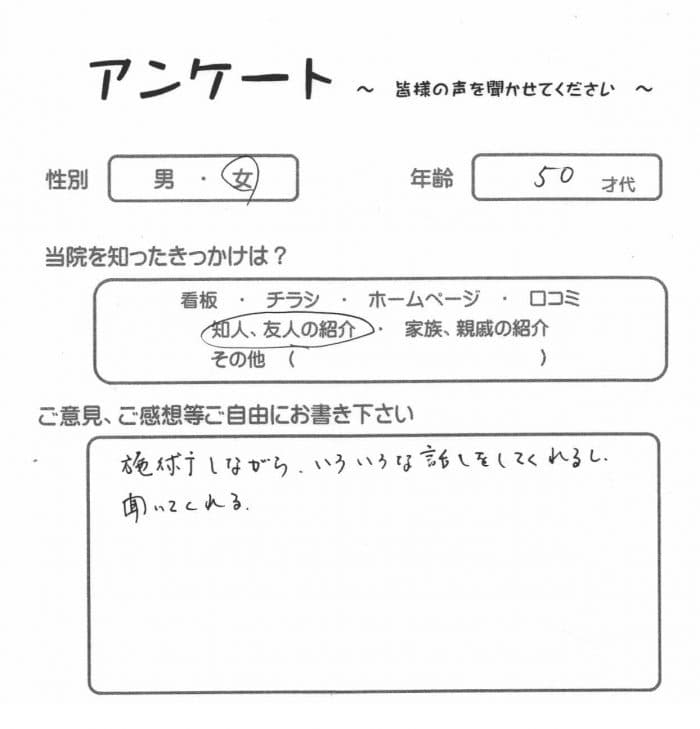 アンケート ～ 皆様の声を聞かせてください ～
性別 男 ・ 女 年齢 50 才代
当院を知ったきっかけは？
看板 ・ チラシ ・ ホームページ ・ 口コミ
知人、友人の紹介 ・ 家族、親戚の紹介
その他 （ ）
ご意見、ご感想等ご自由にお書き下さい
施術しながら、いろいろな話しをしてくれるし、
聞いてくれる。